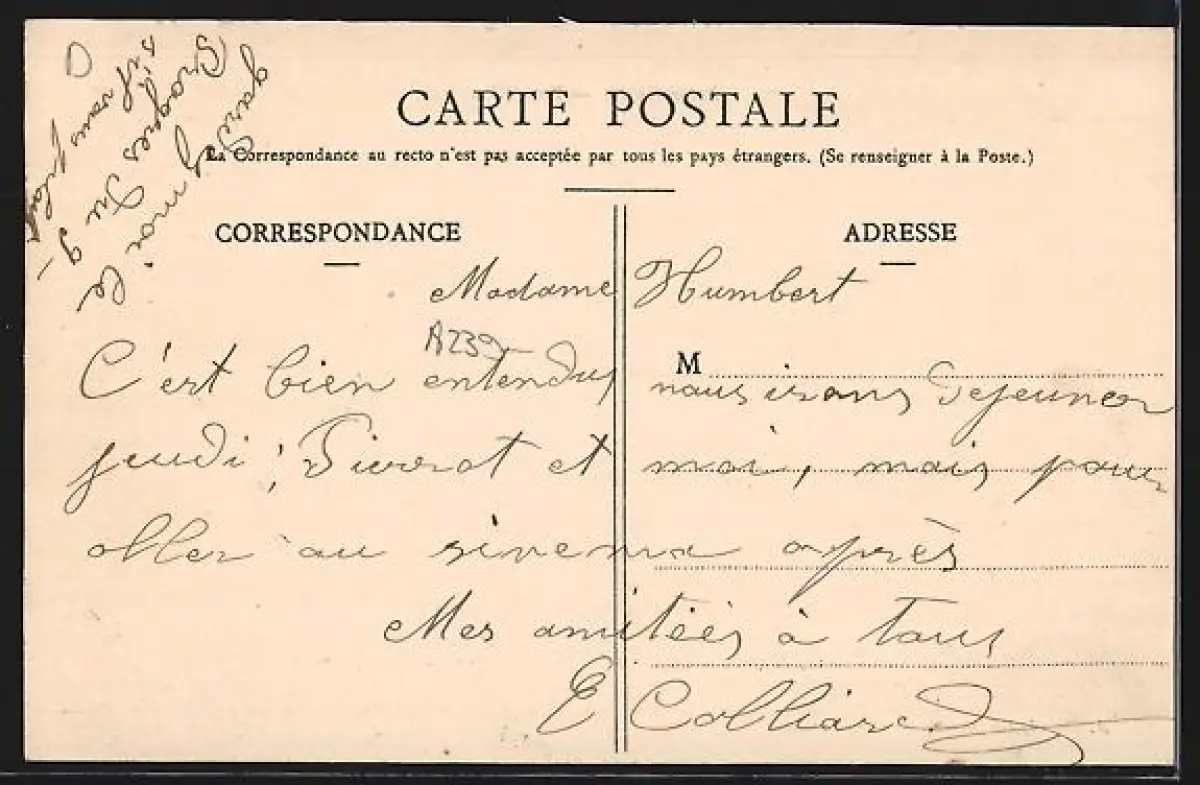 CARTE POSTALE
La Correspondance au recto n'est pas acceptée par tous les pays étrangers. (Se renseigner à la Poste.)
CORRESPONDANCE
ADRESSE
gardez moi le
Progrès du 9
s'il vous plait
Madame Humbert
A239
M
C'est bien entendu, nous irons dejeuner
jeudi, Pierrot et moi, mais pour
aller au sinema après
Mes amitiés à tous
E Colliard